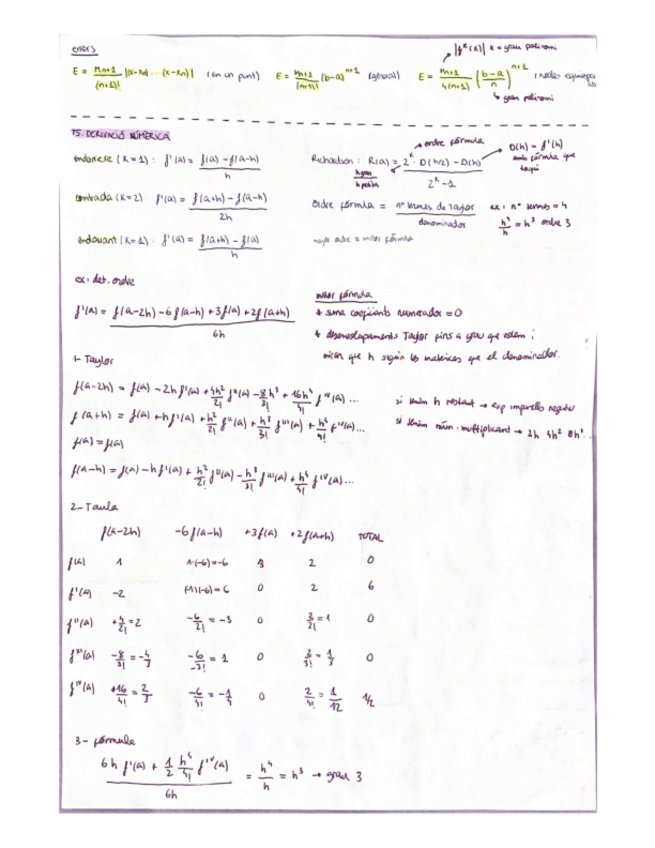 errors
E = Mn+1/(n+1)! |(x-x0)...(x-xn)| (en un punt) E = Mn+1/(n+1)! (b-a)^n+1 (general) E = Mn+1/4(n+1) ((b-a)/n)^n+1 (nodes
|f^k(x)| k = grau polinomi
↳ grau polinomi
T5. DERIVACIÓ NUMÈRICA
endarrere (K=1): f'(a) = f(a) - f(a-h) / h
centrada (K=2): f'(a) = f(a+h) - f(a-h) / 2h
endavant (K=1): f'(a) = f(a+h) - f(a) / h
→ ordre fórmula
Richardson: R(a) = 2^k · D(h/2) - D(h) / 2^k - 1
h gran
h petita
D(h) = f'(h)
amb fórmula que
toqui
Ordre fórmula = nº termes de Taylor / denominador
ex: nº termes = 4
h⁴/h = h³ ordre 3
major ordre = millor fórmula
ex: det. ordre
f'(a) = f(a-2h) - 6f(a-h) + 3f(a) + 2f(a+h) / 6h
millor fórmula
+ suma coeficients numerador = 0
+ desenvolupaments Taylor fins a grau que volem i
mirar que h siguin les mateixes que el denominador.
1- Taylor
f(a-2h) = f(a) - 2h f'(a) + 4h²/2! f''(a) - 8h³/3! + 16h⁴/4! f^IV(a)...
f(a+h) = f(a) + h f'(a) + h²/2! f''(a) + h³/3! f'''(a) + h⁴/4! f^IV(a)...
f(a) = f(a)
f(a-h) = f(a) - h f'(a) + h²/2! f''(a) - h³/3! f'''(a) + h⁴/4! f^IV(a)...
si tenim h restant → exp imparells negatiu
si tenim núm. multiplicant → 2h 4h² 8h³..
2- Taula
f(a-2h) -6f(a-h) +3f(a) +2f(a+h) TOTAL
f(a) 1 1·(-6)=-6 3 2 0
f'(a) -2 (-1)(-6)=6 0 2 6
f''(a) +4/2! = 2 -6/2! = -3 0 2/2! = 1 0
f'''(a) -8/3! = -4/3 -6/-3! = 1 0 2/3! = 1/3 0
f^IV(a) +16/4! = 2/3 -6/4! = -1/4 0 2/4! = 1/12 1/2
3- fórmula
6h f'(a) + 1/2 h⁴/4! f^IV(a) / 6h = h⁴/h = h³ → grau 3